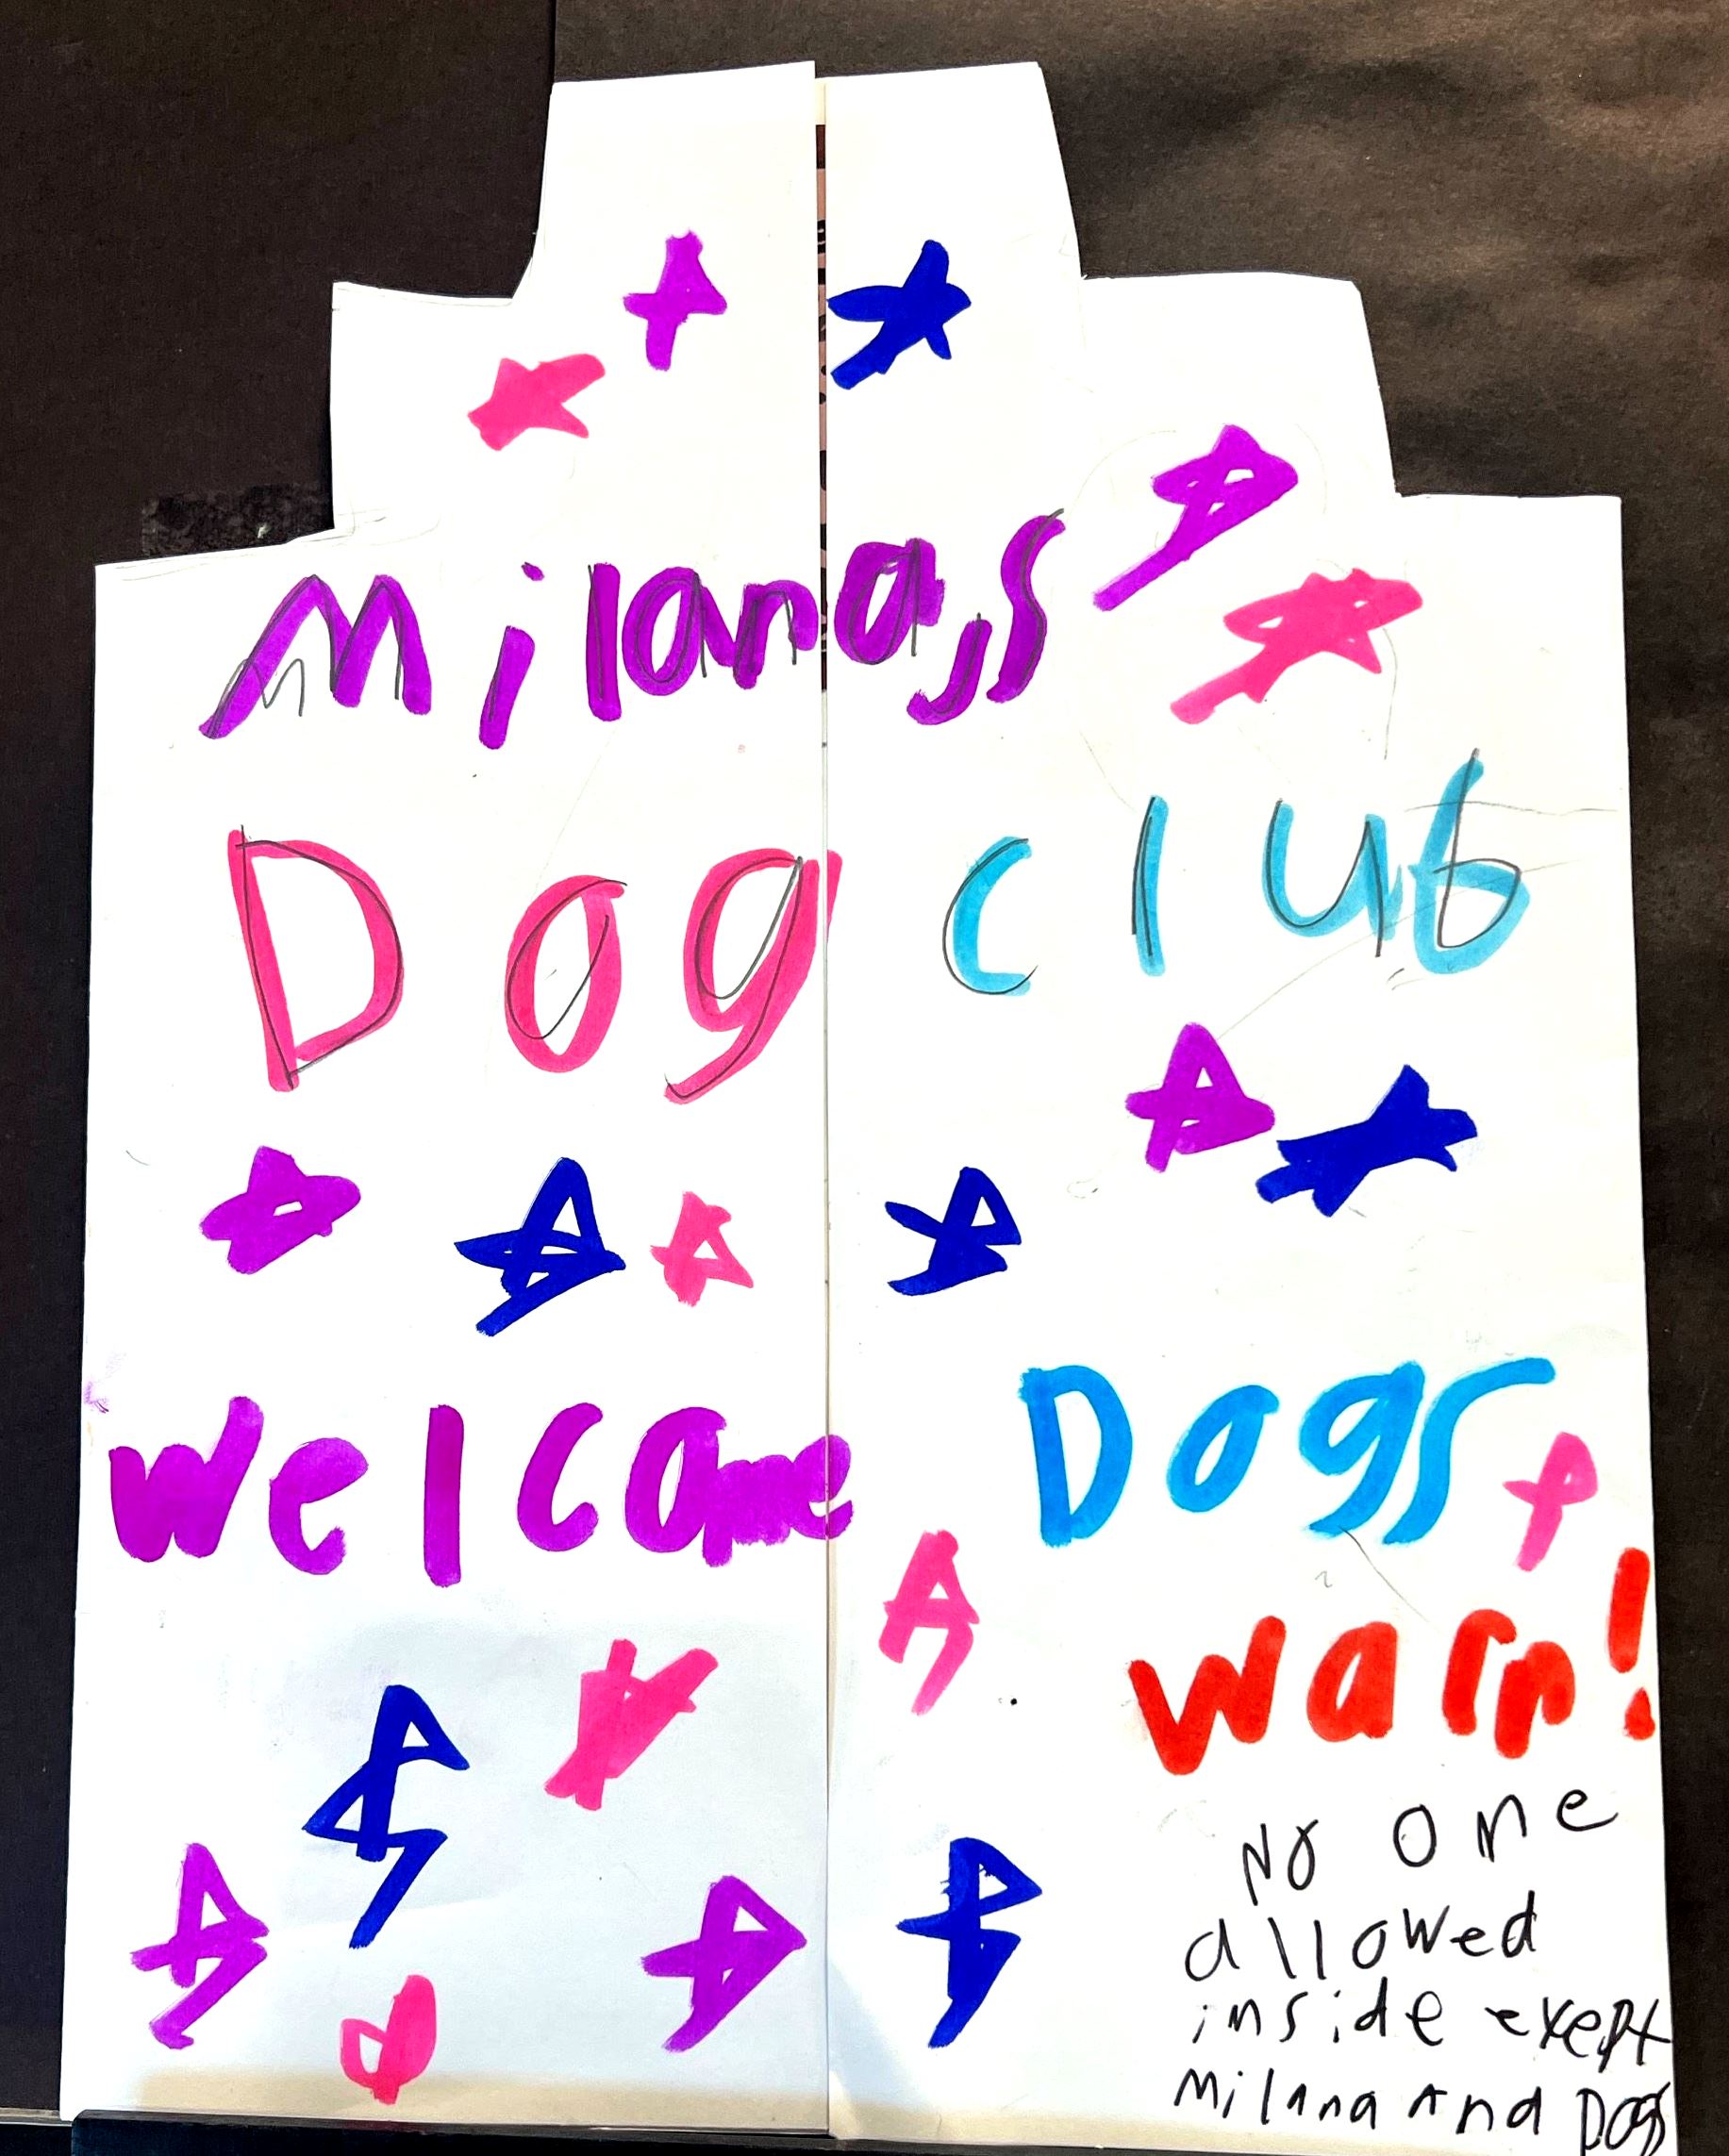 Milana,s
Dog club
welcome Dogs
warn!
No one
allowed
inside exept
Milana And Dogs